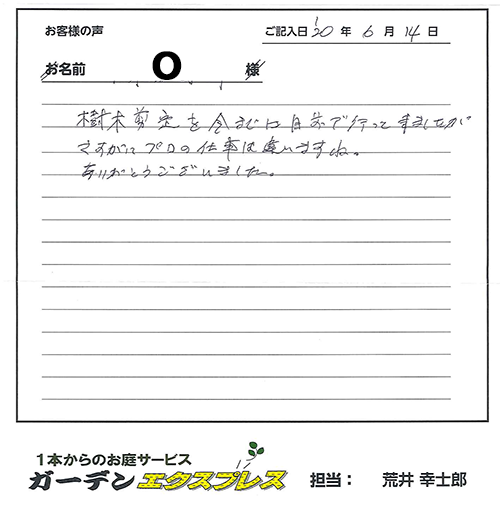 お客様の声
ご記入日 '20 年 6 月 14 日
お名前 O 様
樹木剪定を今までは自分で行ってきましたが
さすがにプロの仕事は違いますね。
ありがとうございました。
1本からのお庭サービス
ガーデンエクスプレス 担当： 荒井 幸士郎